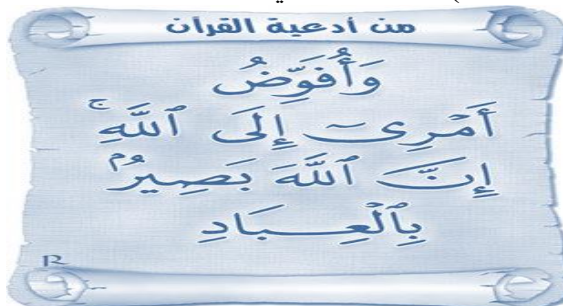 من أدعية القرآن
وَأُفَوِّضُ
أَمْرِىٓ إِلَى ٱللَّهِ ۚ
إِنَّ ٱللَّهَ بَصِيرٌۢ
بِٱلْعِبَادِ
R